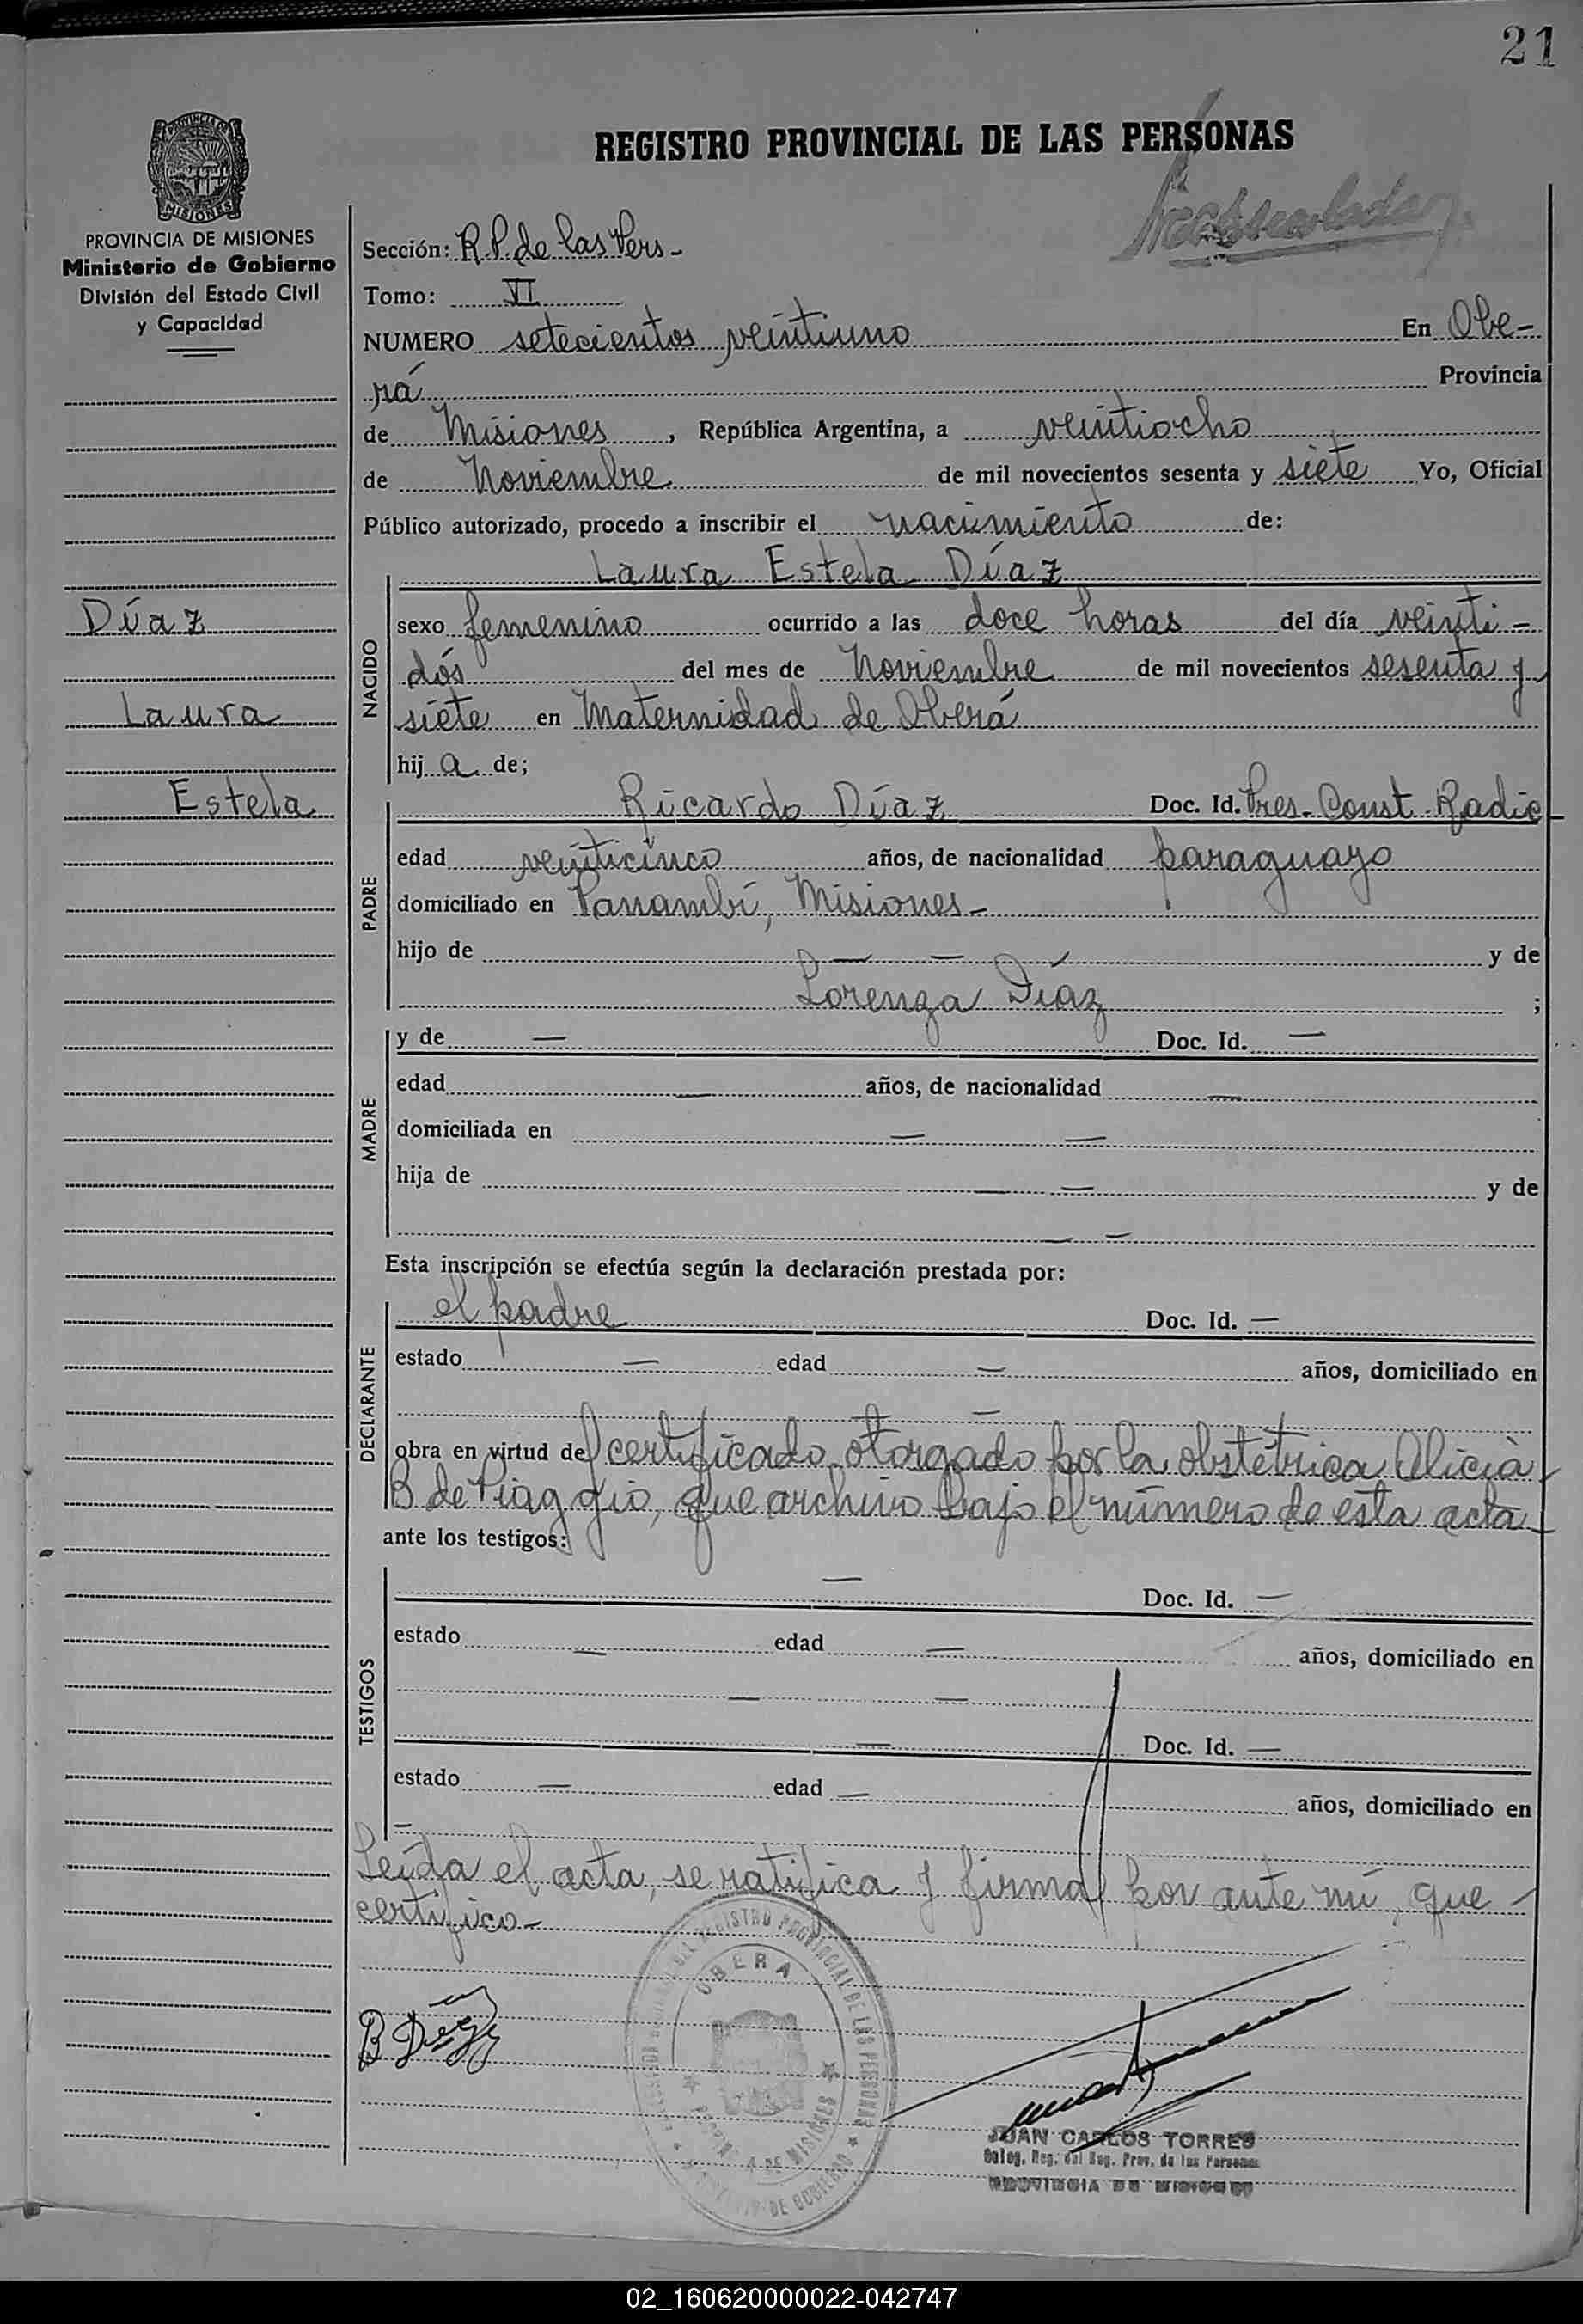 21
REGISTRO PROVINCIAL DE LAS PERSONAS
PROVINCIA DE MISIONES
MISIONES
PROVINCIA DE MISIONES
Ministerio de Gobierno
División del Estado Civil
y Capacidad
Sección: R.P. de las Pers-
Tomo: VI
NUMERO setecientos veintiuno En Obe-
rá Provincia
de Misiones, República Argentina, a veintiocho
de Noviembre de mil novecientos sesenta y siete Yo, Oficial
Público autorizado, procedo a inscribir el nacimiento de:
Laura Estela Díaz
Díaz
Laura
Estela
NACIDO
sexo femenino ocurrido a las doce horas del día veinti-
dós del mes de Noviembre de mil novecientos sesenta y
siete en Maternidad de Oberá
hija de;
PADRE
Ricardo Díaz Doc. Id. Pres. Const. Radic-
edad veinticinco años, de nacionalidad paraguayo
domiciliado en Panambí, Misiones-
hijo de — — y de
Lorenza Díaz ;
MADRE
y de — Doc. Id. —
edad — años, de nacionalidad —
domiciliada en — —
hija de — — y de
— —
Esta inscripción se efectúa según la declaración prestada por:
DECLARANTE
el padre Doc. Id. —
estado — edad — años, domiciliado en
— —
obra en virtud de certificado otorgado por la obstétrica Alicia
B de Piaggio, que archivo bajo el número de esta acta-
ante los testigos:
TESTIGOS
— Doc. Id. —
estado — edad — años, domiciliado en
— —
— Doc. Id. —
estado — edad — años, domiciliado en
—
Leída el acta, se ratifica y firma por ante mí, que -
certifico-
REGISTRO PROVINCIAL DE LAS PERSONAS
OBERA
B Díaz
JUAN CARLOS TORRES
Deleg. Reg. del Reg. Prov. de las Personas
PROVINCIA DE MISIONES
02_160620000022-042747